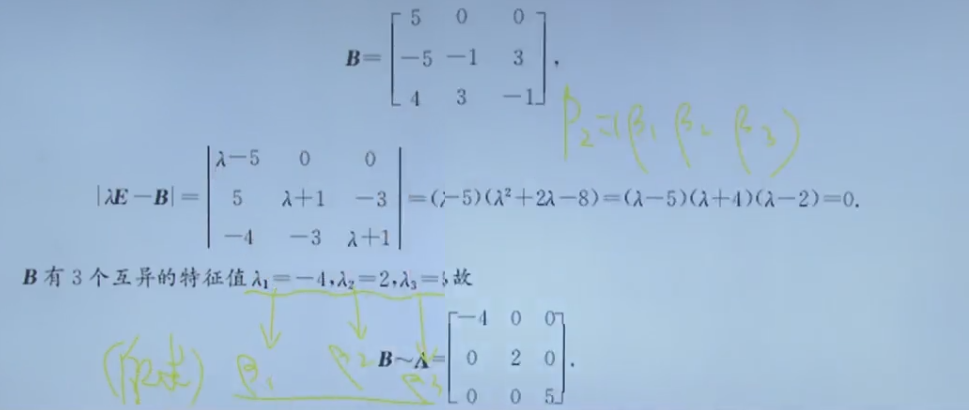 B = [ 5 0 0
−5 −1 3
4 3 −1 ],
P₂=(β₁ β₂ β₃)
|λE−B| = | λ−5 0 0
5 λ+1 −3
−4 −3 λ+1 | =(λ−5)(λ²+2λ−8)=(λ−5)(λ+4)(λ−2)=0.
B 有 3 个互异的特征值 λ₁=−4,λ₂=2,λ₃=5,故
β₁ β₂ β₃
B~Λ= [ −4 0 0
0 2 0
0 0 5 ].